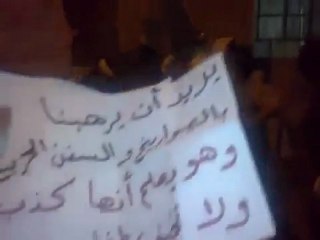 يريد أن يرهبنا
بالصواريخ و السفن الحربية
وهو يعلم أنها كذب
ولا